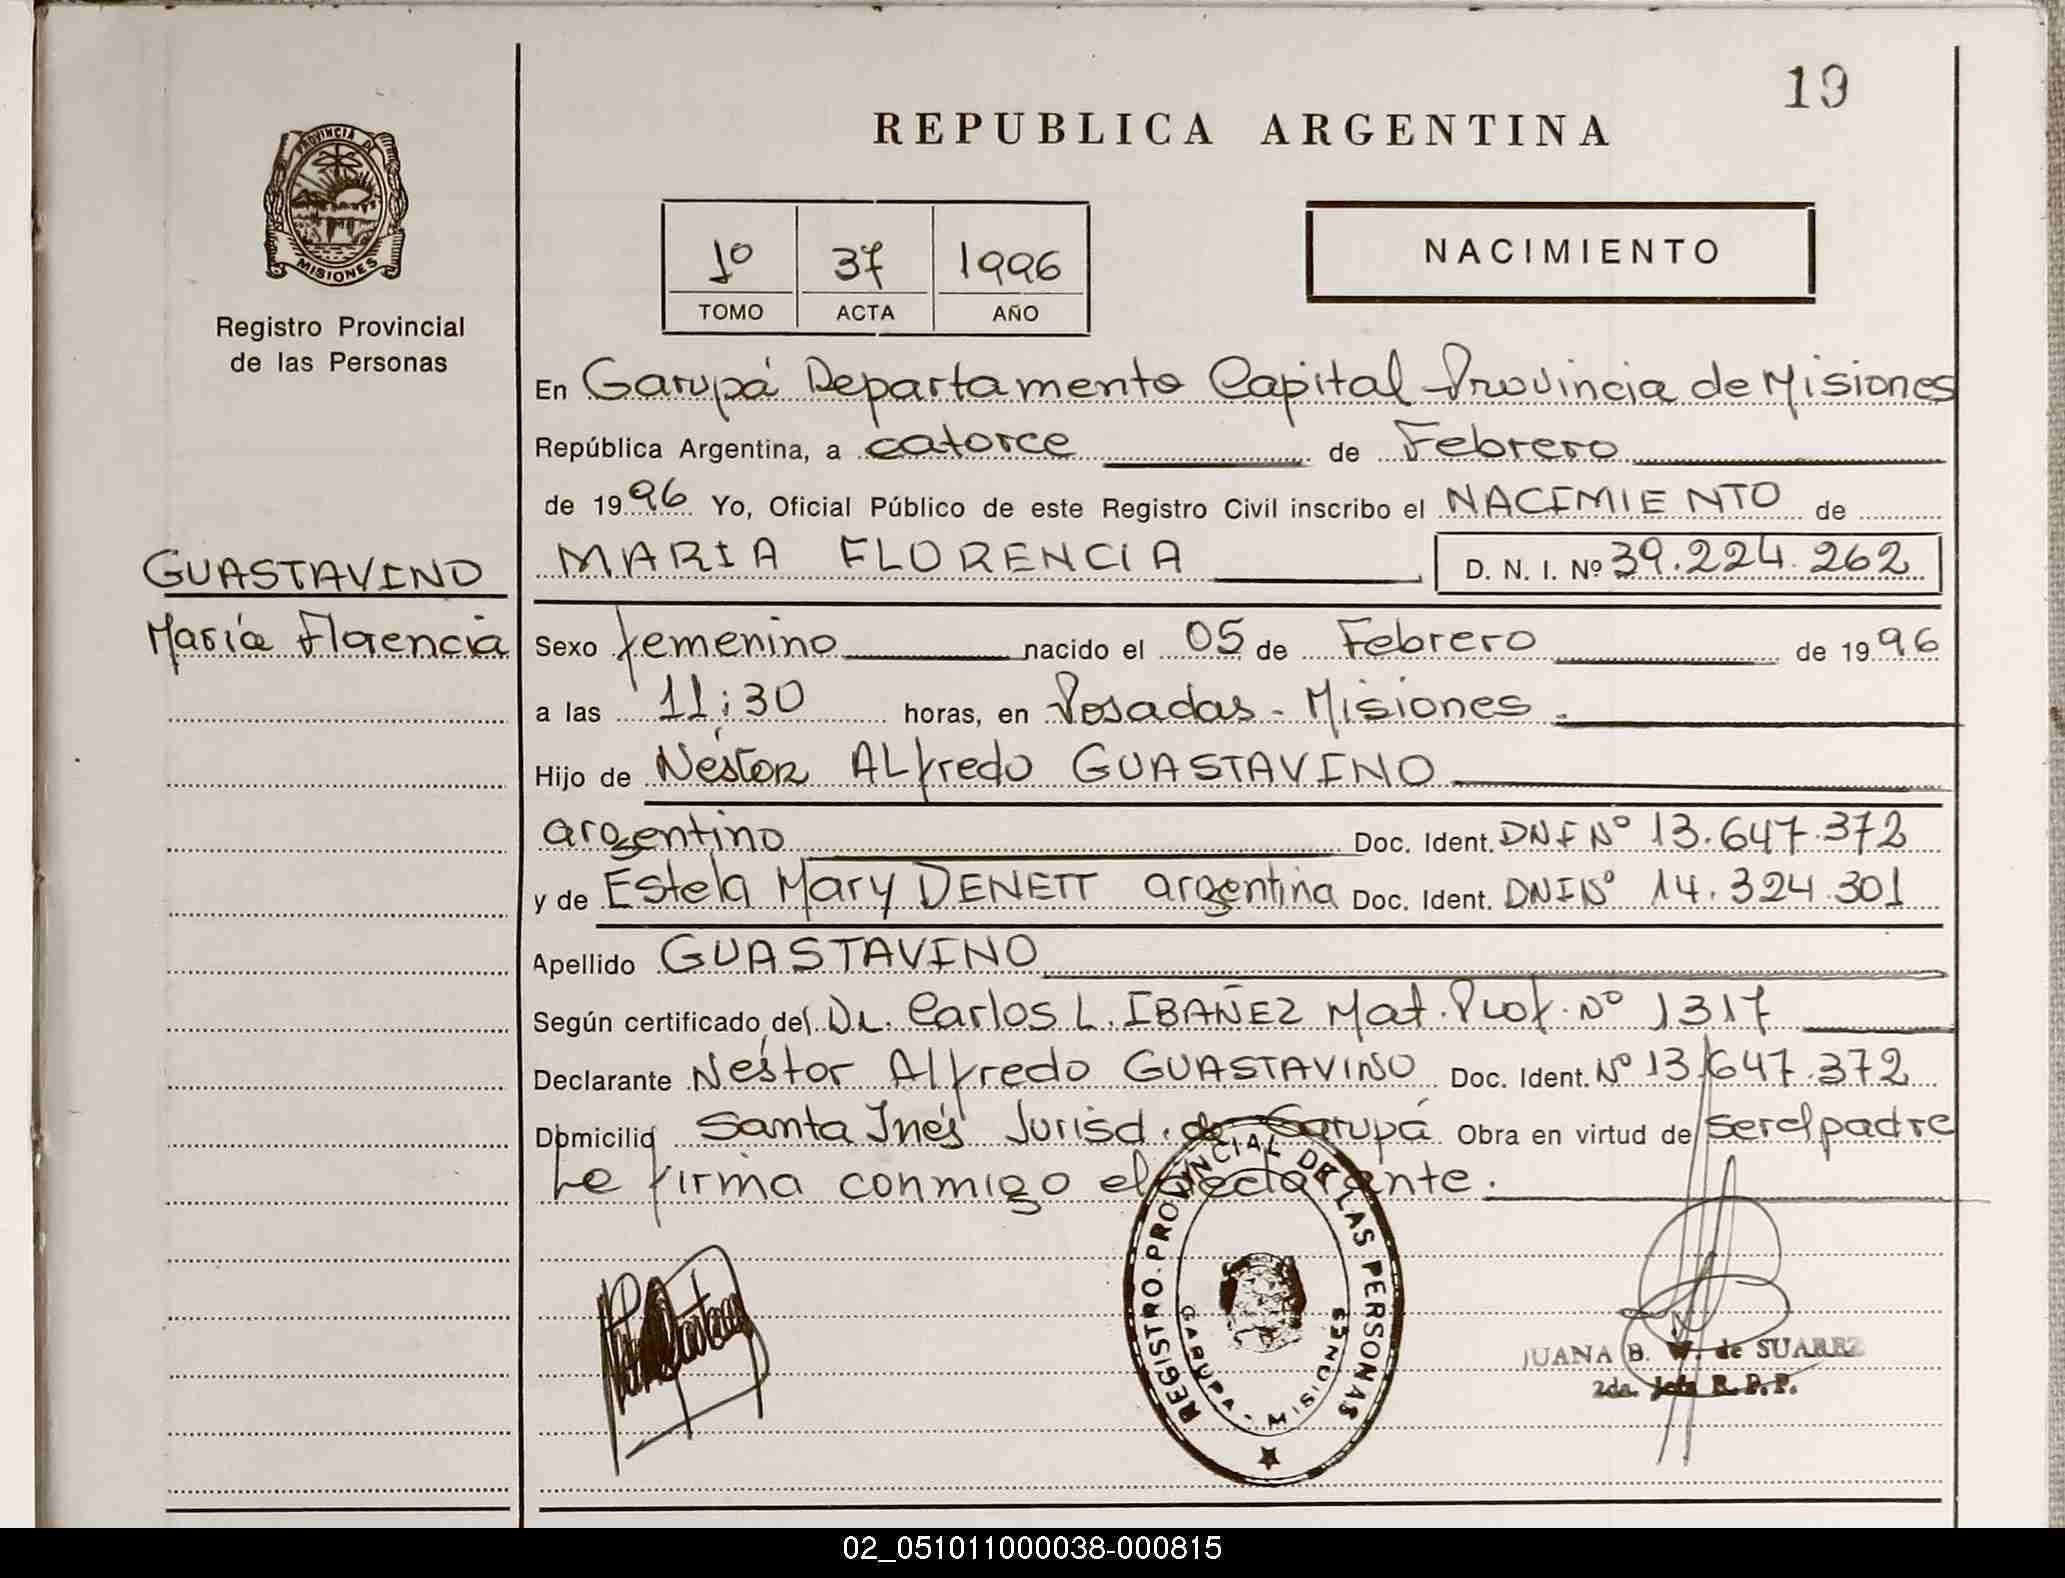 19
REPUBLICA ARGENTINA
PROVINCIA DE
MISIONES
Registro Provincial
de las Personas
1º 37 1996
TOMO ACTA AÑO
NACIMIENTO
En Garupá Departamento Capital Provincia de Misiones
República Argentina, a catorce de Febrero
de 1996 Yo, Oficial Público de este Registro Civil inscribo el NACIMIENTO de
MARIA FLORENCIA D. N. I. Nº 39.224.262
GUASTAVINO
María Florencia
Sexo femenino nacido el 05 de Febrero de 1996
a las 11:30 horas, en Posadas - Misiones.
Hijo de Néstor Alfredo GUASTAVINO
argentino Doc. Ident. DNI Nº 13.647.372
y de Estela Mary DENETT argentina Doc. Ident. DNI Nº 14.324.301
Apellido GUASTAVINO
Según certificado del Dr. Carlos L. IBAÑEZ Mat. Prof. Nº 1317
Declarante Néstor Alfredo GUASTAVINO Doc. Ident. Nº 13.647.372
Domicilio Santa Inés Jurisd. de Garupá Obra en virtud de ser el padre
Le firma conmigo el declarante.
REGISTRO PROVINCIAL DE LAS PERSONAS
GARUPA - MISIONES
JUANA B. de SUAREZ
2da. Jefe R.P.P.
02_051011000038-000815